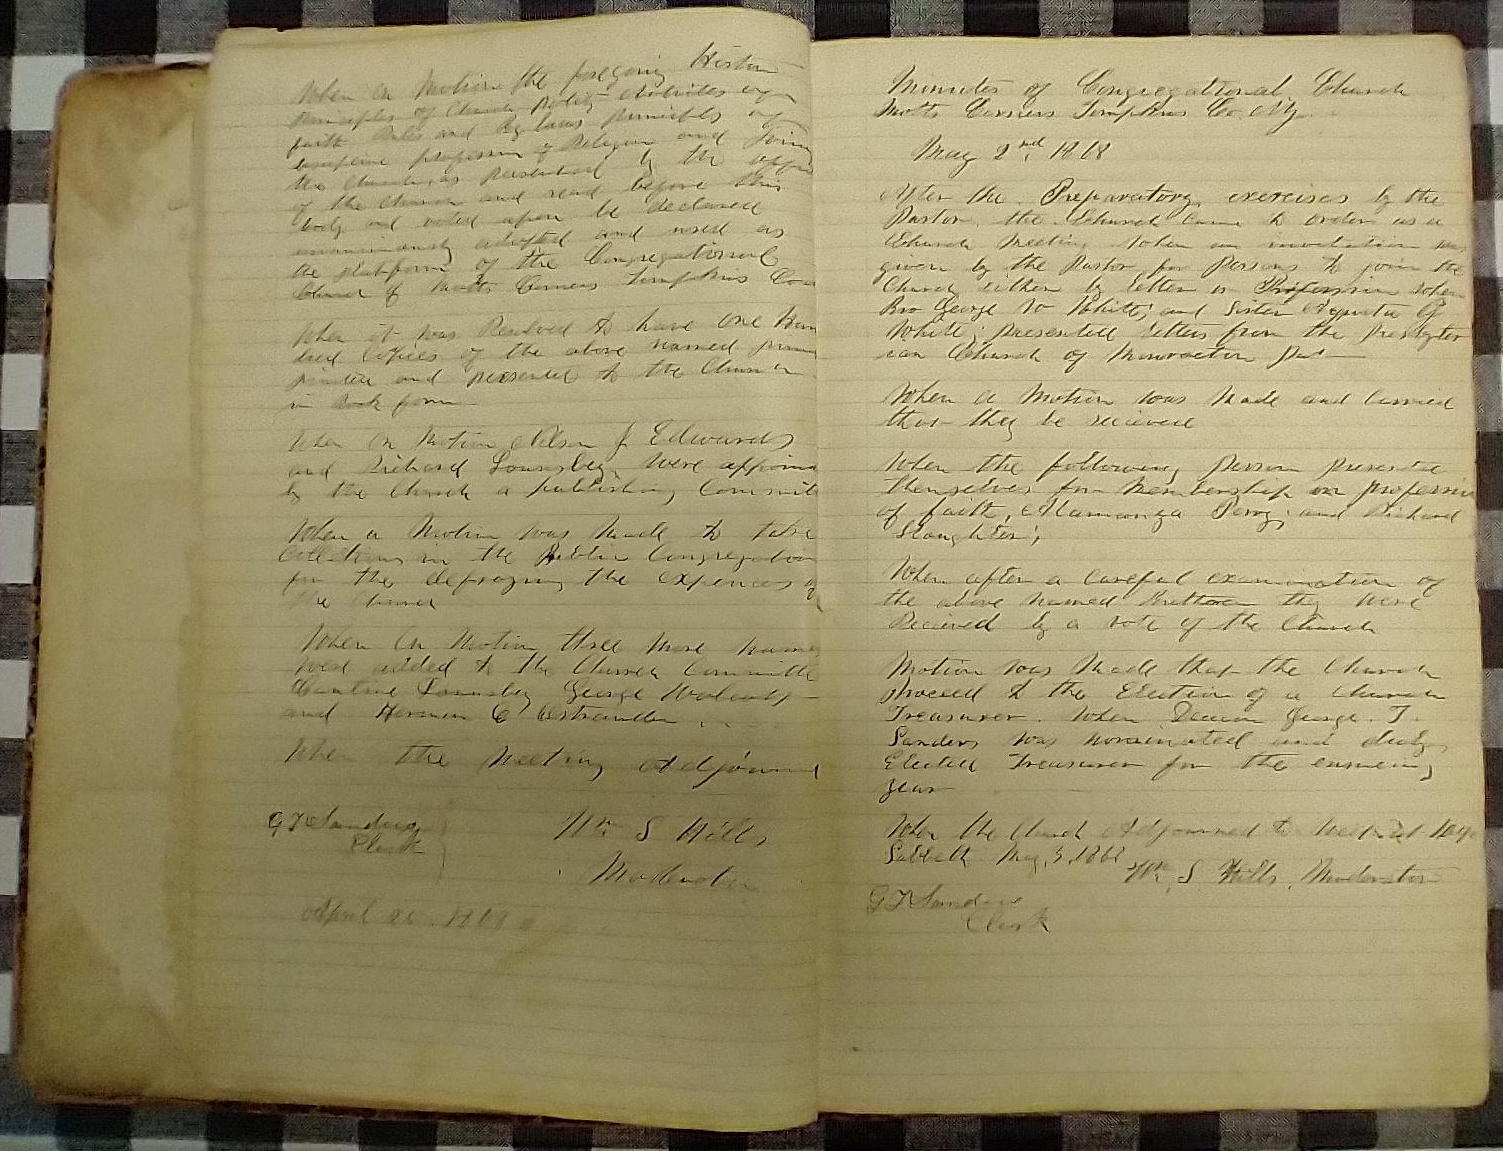 When on Motion the foregoing Histor
Principles of Church Polity Articles of
faith Rules and By laws principles of
discipline profession of Religion and Form
the Church, as presented by the
of the Church and read before this
body and voted upon be declared
unanimously adopted and used as
the platform of the Congregational
Church of Motts Corners Tompkins Co
When it was Resolved to have one Hun
dred Copies of the above named
printed and presented to the Church
in Book form
When on Motion Nelson J. Edwards
and Richard Lounsbey, were appoin
by the Church a publishing Committ
When a Motion was Made to take
Collections in the Public Congregation
for the defraying the expences of
the Church
When On Motion three More names
were added to the Church Committe
Cantine Lounsbey George Wolcott
and Herman C Ostrander
When the Meeting Adjourned
G T Sanders
Clerk
Wm S Hills
Moderator
April 1868
Minutes of Congregational Church
Motts Corners Tompkins Co. Ny.
May 2nd, 1868
After the Preparatory exercises by the
Pastor. the Church came to order as a
Church Meeting When an invitation was
given by the Pastor for Persons to join the
Church either by letter or Profession when
Bro George W White; and Sister G
White; presented letters from the Presbyter
ian Church of Pa
When a Motion was Made and Carried
that they be recieved
When the following person presented
themselves for Membership on profession
of faith, Alamanza Perry; and Richard
Slaughter;
When after a careful examination of
the above Named Brethren they were
Recieved by a vote of the Church
Motion was Made that the Church
proceed to the Election of a Church
Treasurer. When Deacon George. T.
Sanders was nominated and duly
Elected Treasurer for the ensueing
year
When the Church Adjourned to meet
Sabbath May, 3, 1868
Wm S Hills, Moderator
G T Sanders
Clerk